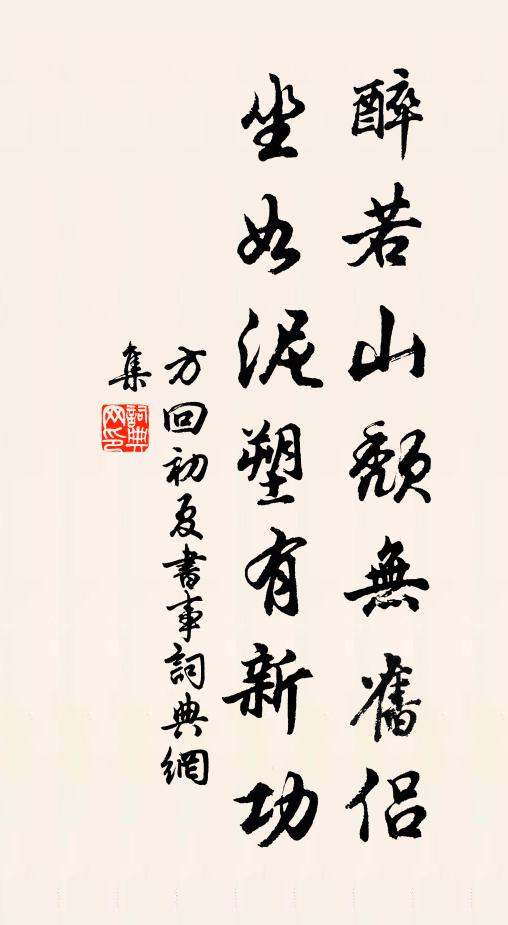 醉若山頹無舊侶
坐如泥塑有新功
方回初夏書事詞典網
集
詞典網印